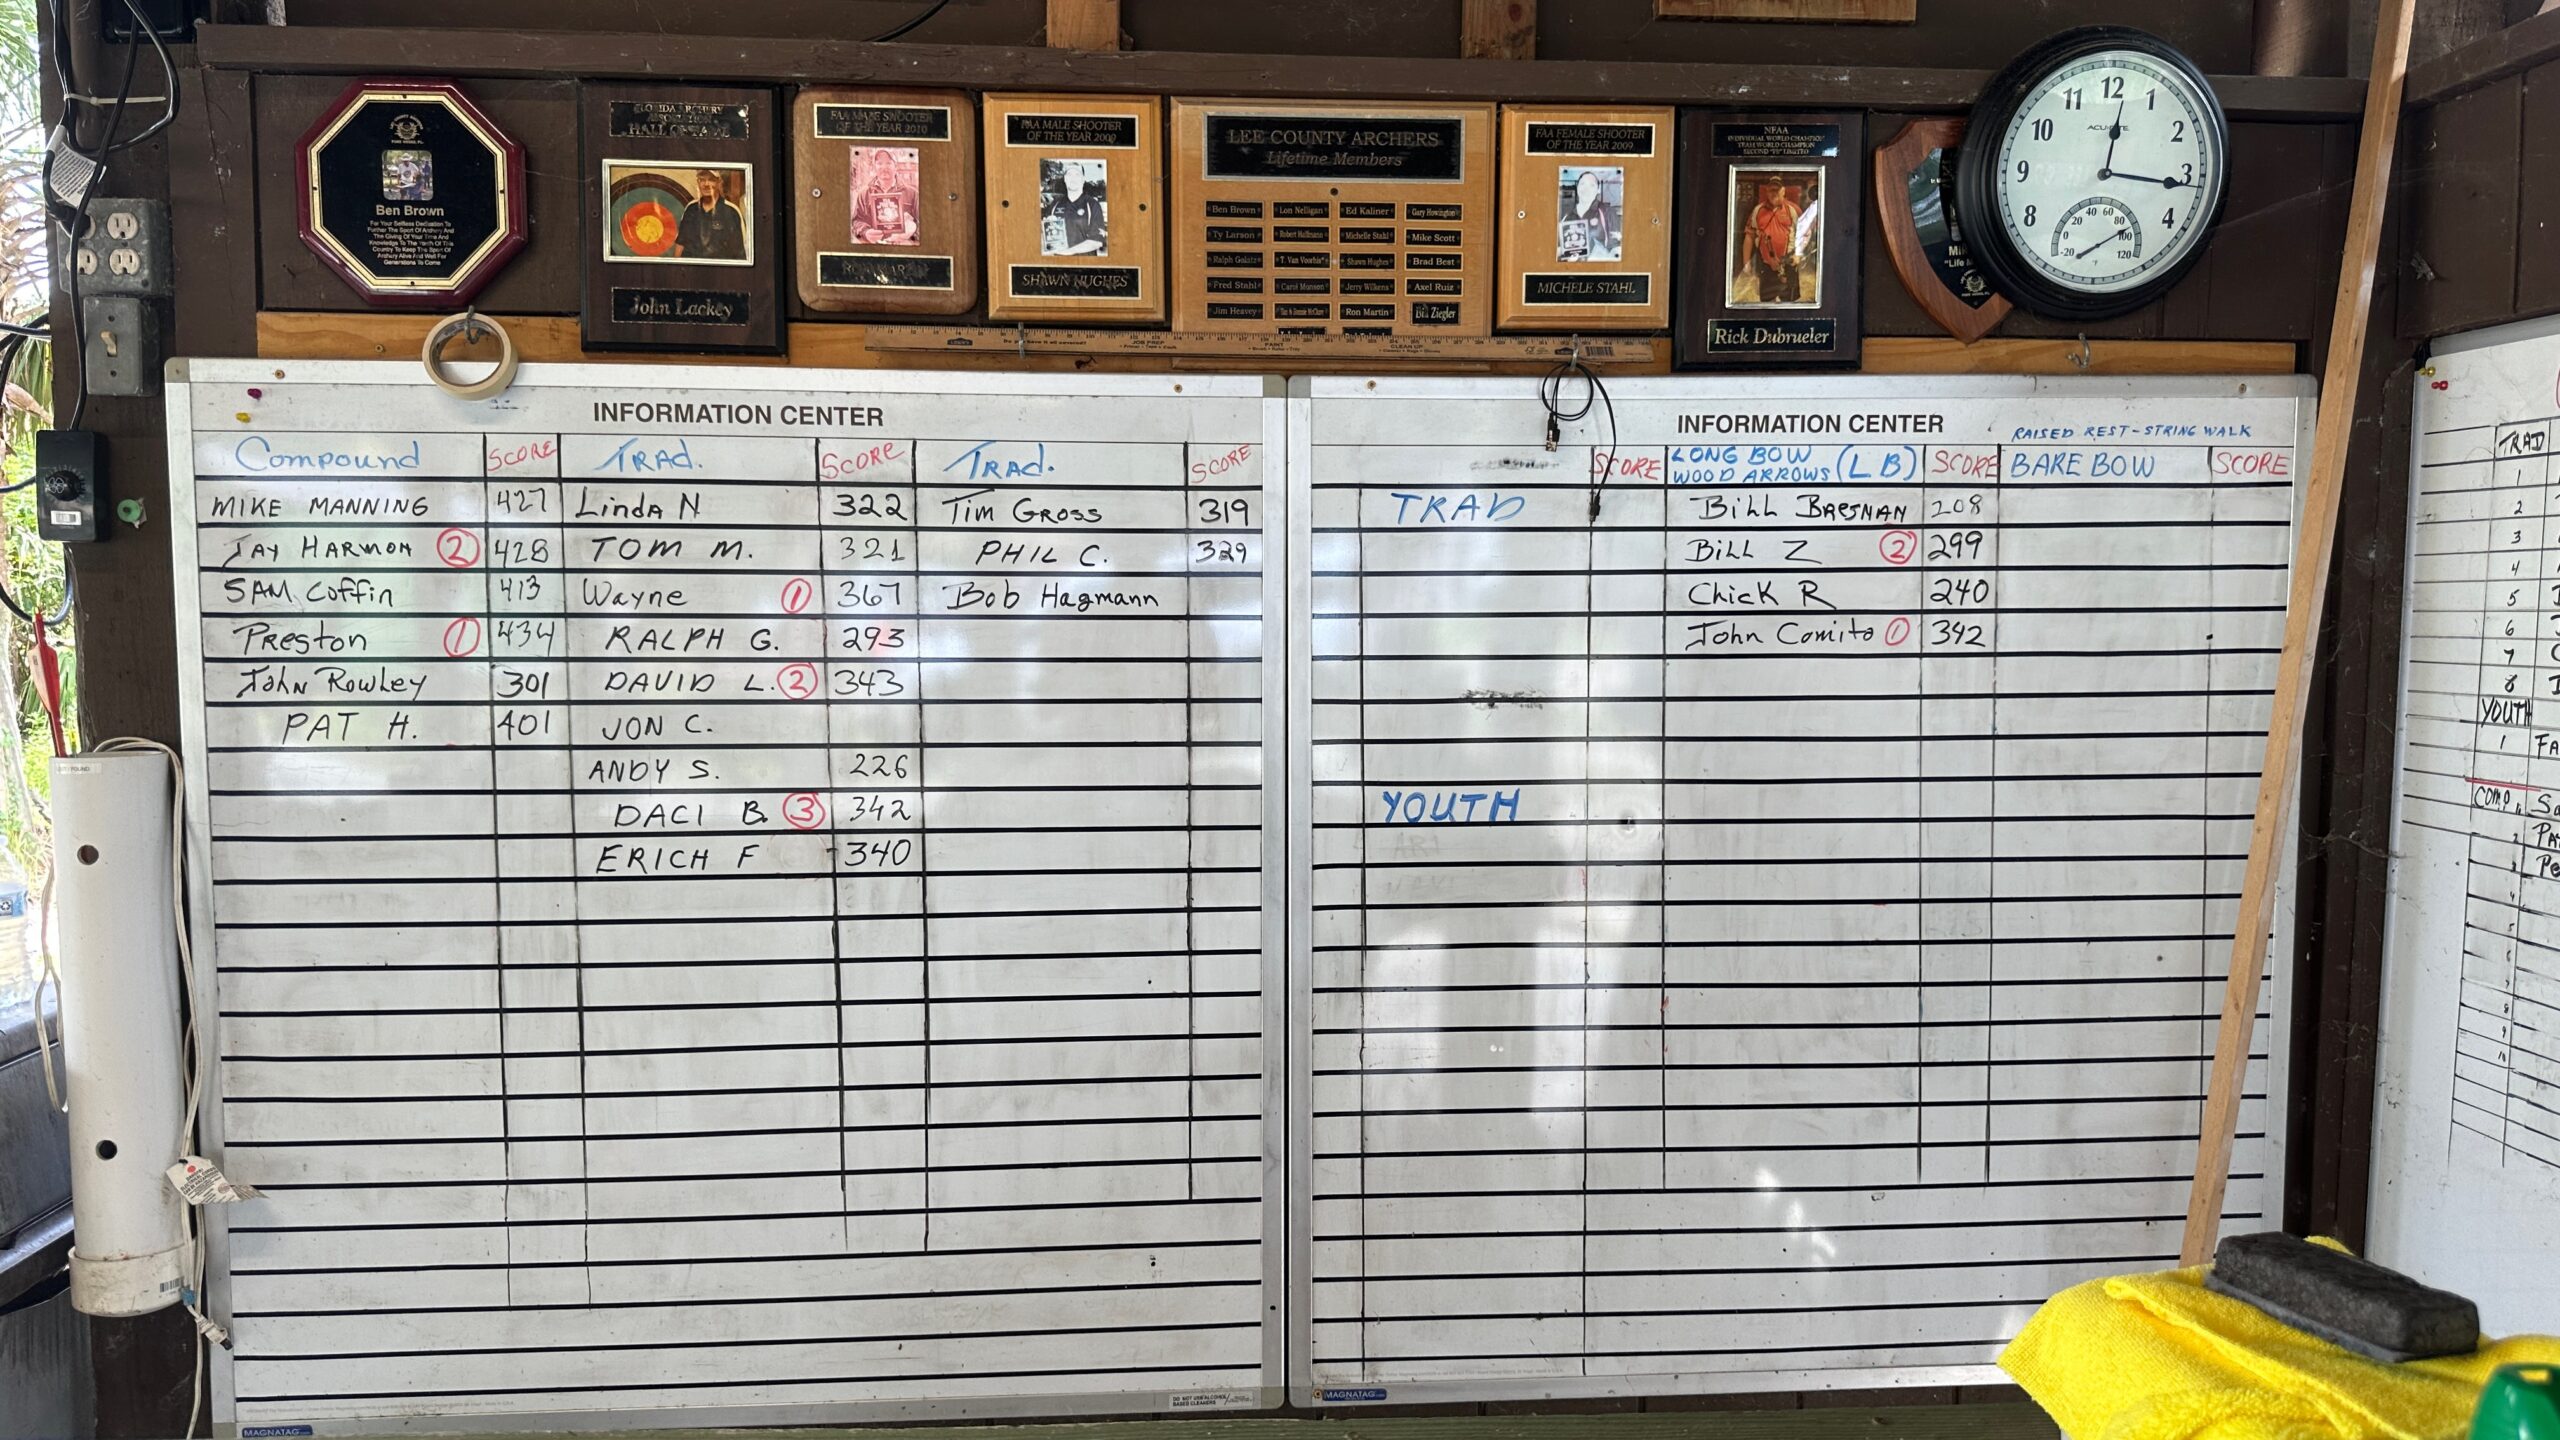 Ben Brown
For Your Selfless Dedication To
Further The Sport Of Archery And
The Giving Of Your Time And
Knowledge To The Youth Of This
Country To Keep The Sport Of
Archery Alive And Well For
Generations To Come
FLORIDA ARCHERY
ASSOCIATION
HALL OF FAME
John Lackey
FAA MALE SHOOTER
OF THE YEAR 2010
FAA MALE SHOOTER
OF THE YEAR 2009
SHAWN HUGHES
LEE COUNTY ARCHERS
Lifetime Members
Ben Brown Lon Nelligan Ed Kaliner Gary Howington
Ty Larson Robert Hallmann Michelle Stahl Mike Scott
Ralph Golatz T. Van Voorhis Shawn Hughes Brad Best
Fred Stahl Carol Monson Jerry Wilkens Axel Ruiz
Jim Heavey Ron Martin Bill Ziegler
FAA FEMALE SHOOTER
OF THE YEAR 2009
MICHELE STAHL
NFAA
INDIVIDUAL WORLD CHAMPION
TEAM WORLD CHAMPION
Rick Dubrueler
ACU-RITE
12 1 2 3 4 8 9 10 11
-20 0 20 40 60 80 100 120
INFORMATION CENTER
Compound SCORE TRAD. SCORE TRAD. SCORE
MIKE MANNING 427 Linda N 322 Tim Gross 319
JAY HARMON 2 428 TOM M. 321 PHIL C. 329
SAM Coffin 413 Wayne 1 367 Bob Hagmann
Preston 1 434 RALPH G. 293
John Rowley 301 DAVID L. 2 343
PAT H. 401 JON C.
ANDY S. 226
DACI B. 3 342
ERICH F 340
MAGNATAG
DO NOT USE ALCOHOL
BASED CLEANERS
INFORMATION CENTER
RAISED REST-STRING WALK
SCORE LONG BOW WOOD ARROWS (LB) SCORE BARE BOW SCORE
TRAD Bill Bresnan 208
Bill Z 2 299
Chick R 240
John Comito 1 342
YOUTH
MAGNATAG
TRAD
1
2
3
4
5
6
7
8
YOUTH
1 FA
COMP.
2 PA
3 Pe